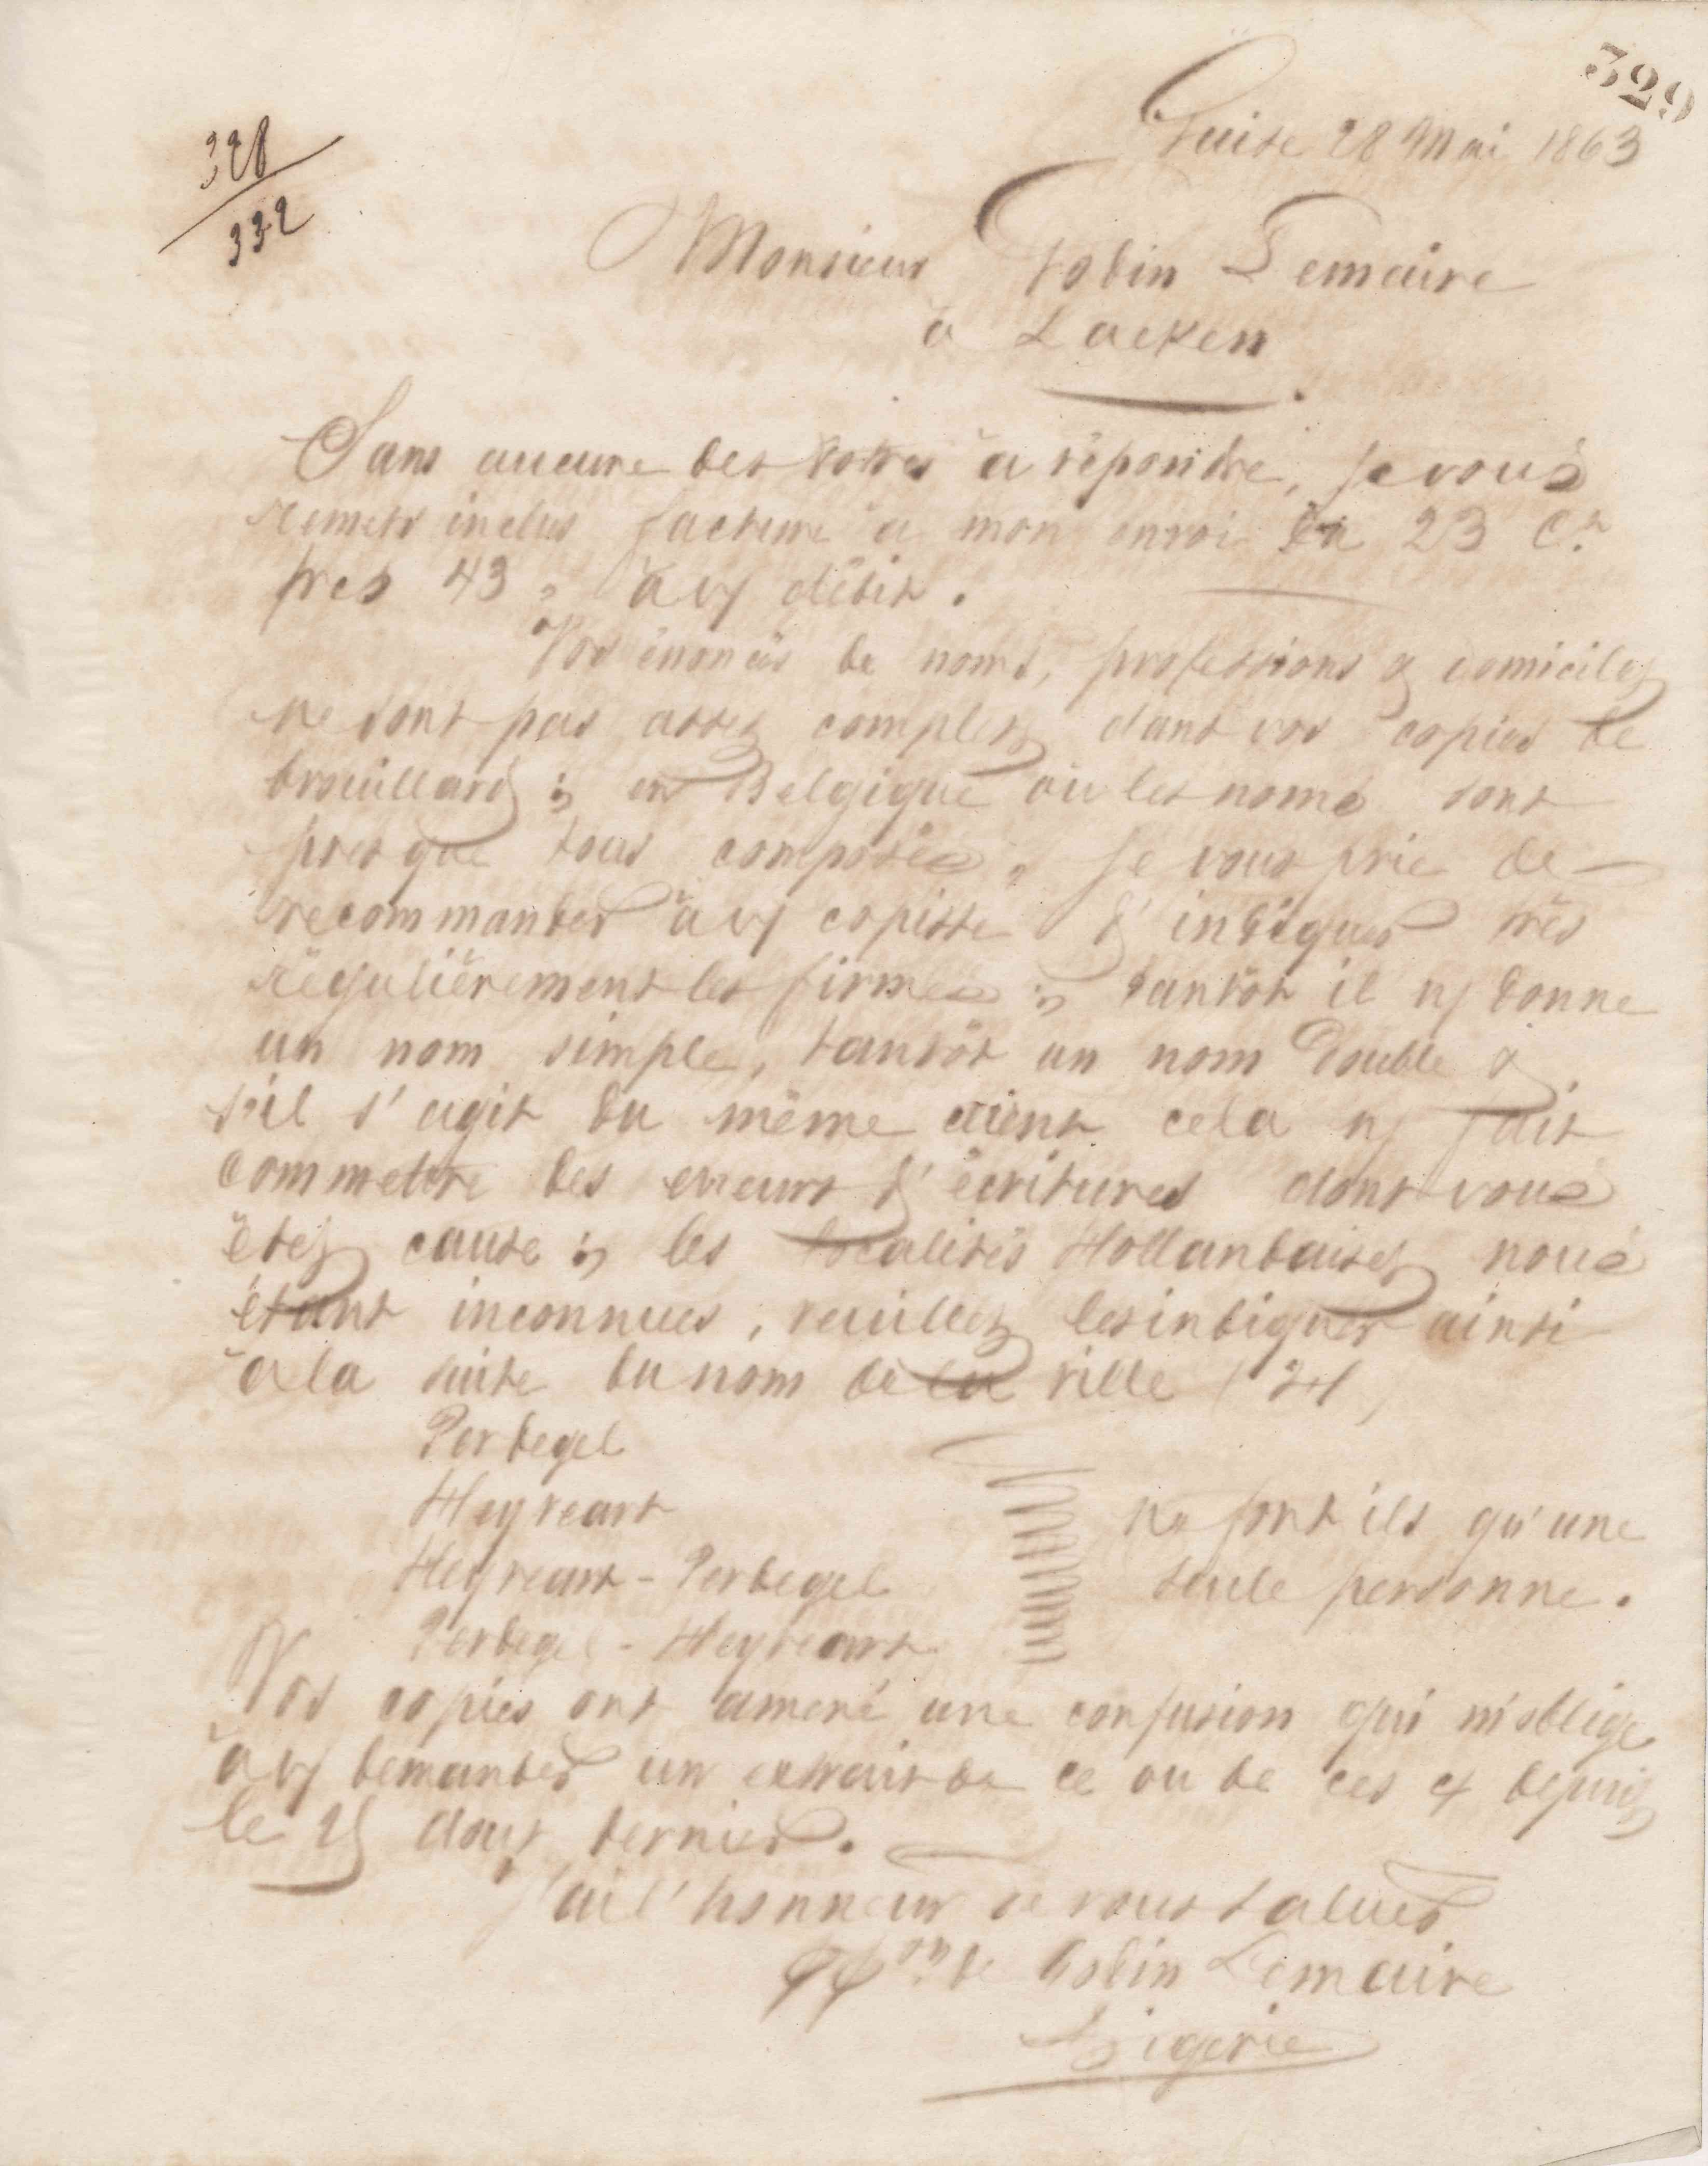 329
328
332
Guise 28 Mai 1863
Monsieur Godin Lemaire
à Laeken
Sans aucune des votres à répondre, je vous
remets inclus facture à mon envoi du 23 Ct
frcs 43 " à v/ débit.
Vos énoncés de noms, professions & domiciles
ne sont pas assez complets dans vos copies de
brouillard ; en Belgique où les noms sont
presque tous composés, je vous prie de
recommander à v/ copiste d'indiquer très
régulièrement les firmes ; tantôt il n/ donne
un nom simple, tantôt un nom double &
s'il s'agit du même client cela n/ fait
commettre des erreurs d'écritures dont vous
êtes cause ; les localités Hollandaises nous
étant inconnues, veuillez les indiquer ainsi
à la suite du nom de la ville (H)
Perdegel
Heyveart
Heyveart - Perdegel
Perdegel - Heyveart
ne font ils qu'une
seule personne.
Vos copies ont amené une confusion qui m'oblige
à v/ demander un extrait de ce ou de ces c/ depuis
le 25 aout dernier.
J'ai l'honneur de vous saluer
ppon de Godin Lemaire